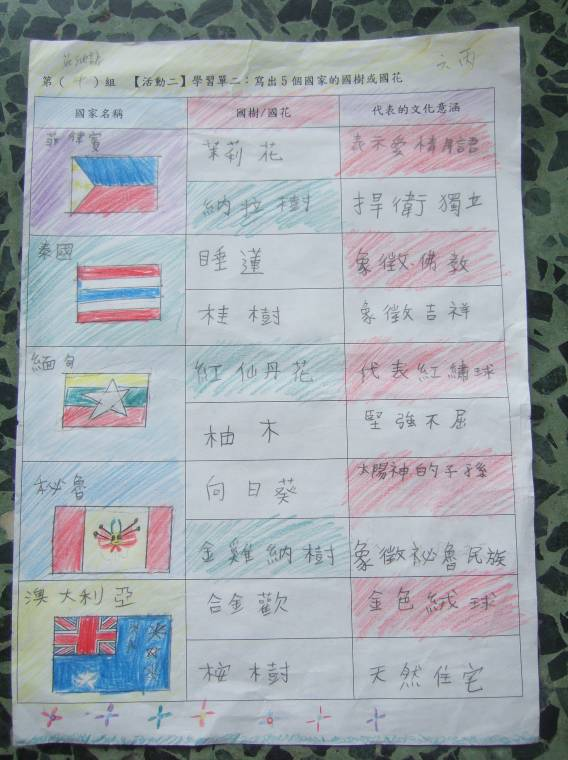 六丙
第(十)組 【活動二】學習單二:寫出5個國家的國樹或國花
國家名稱 國樹/國花 代表的文化意涵
菲律賓
茉莉花 表示愛情
納拉樹 捍衛獨立
泰國
睡蓮 象徵佛教
桂樹 象徵吉祥
緬甸
紅仙丹花 代表紅繡球
柚木 堅強不屈
秘魯
向日葵 太陽神的子孫
金雞納樹 象徵祕魯民族
澳大利亞
合金歡 金色絨球
桉樹 天然住宅